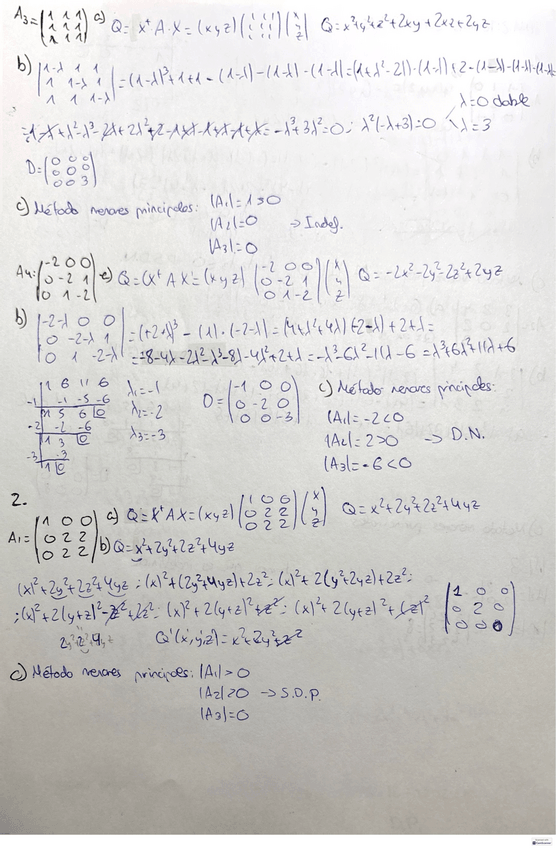 A₃=(1 1 1 / 1 1 1 / 1 1 1) a) Q= Xᵗ A·X = (x y z) (1 1 1 / 1 1 1 / 1 1 1) (x / y / z) Q= x²+y²+z²+2xy+2xz+2yz
b) |1-λ 1 1 / 1 1-λ 1 / 1 1 1-λ| = (1-λ)³+1+1-(1-λ)-(1-λ)-(1-λ)=(1+λ²-2λ)·(1-λ)+2-(1-λ)-(1-λ)-(1-λ)=
λ=0 doble
=1-λ+λ²-λ³-2λ+2λ²+2-1+λ-1+λ-1+λ=-λ³+3λ²=0; λ²(-λ+3)=0 λ=3
D=(0 0 0 / 0 0 0 / 0 0 3)
c) Método menores principales: |A₁|=1>0
|A₂|=0 → Indef.
|A₃|=0
A₄=(-2 0 0 / 0 -2 1 / 0 1 -2) a) Q=(Xᵗ A X=(x y z) (-2 0 0 / 0 -2 1 / 0 1 -2) (x / y / z) Q=-2x²-2y²-2z²+2yz
b) |-2-λ 0 0 / 0 -2-λ 1 / 0 1 -2-λ| =(-2-λ)³-(1)·(-2-λ)=(4+λ²+4λ)(-2-λ)+2+λ=
=-8-4λ-2λ²-λ³-8λ-4λ²+2+λ=-λ³-6λ²-11λ-6=λ³+6λ²+11λ+6
1 6 11 6
-1 -1 -5 -6
1 5 6 0
-2 -2 -6
1 3 0
-3 -3
1 0
λ₁=-1
λ₂=-2
λ₃=-3
D=(-1 0 0 / 0 -2 0 / 0 0 -3)
c) Método menores principales:
|A₁|=-2<0
|A₂|=2>0 → D.N.
|A₃|=-6<0
2.
A₁=(1 0 0 / 0 2 2 / 0 2 2) a) Q=Xᵗ A X=(x y z) (1 0 0 / 0 2 2 / 0 2 2) (x / y / z) Q=x²+2y²+2z²+4yz
b) Q=x²+2y²+2z²+4yz
(x)²+2y²+2z²+4yz; (x)²+(2y²+4yz)+2z²; (x)²+2(y²+2yz)+2z²;
;(x)²+2(y+z)²-z²+2z²; (x)²+2(y+z)²+z²; (x)²+2(y+z)²+(z)² (1 0 0 / 0 2 0 / 0 0 0)
Q'(x',y',z')=x²+2y²+z²
c) Método menores principales: |A₁|>0
|A₂|>0 → S.D.P.
|A₃|=0